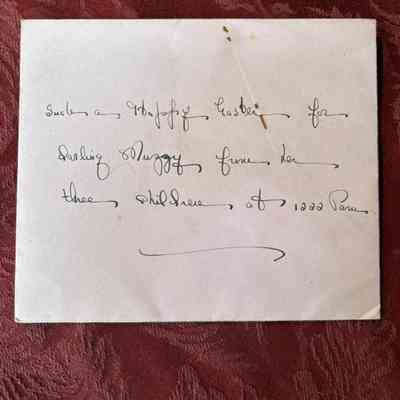 Such a Happy Easter for
Darling Muzzy from her
three children at 1222 Park